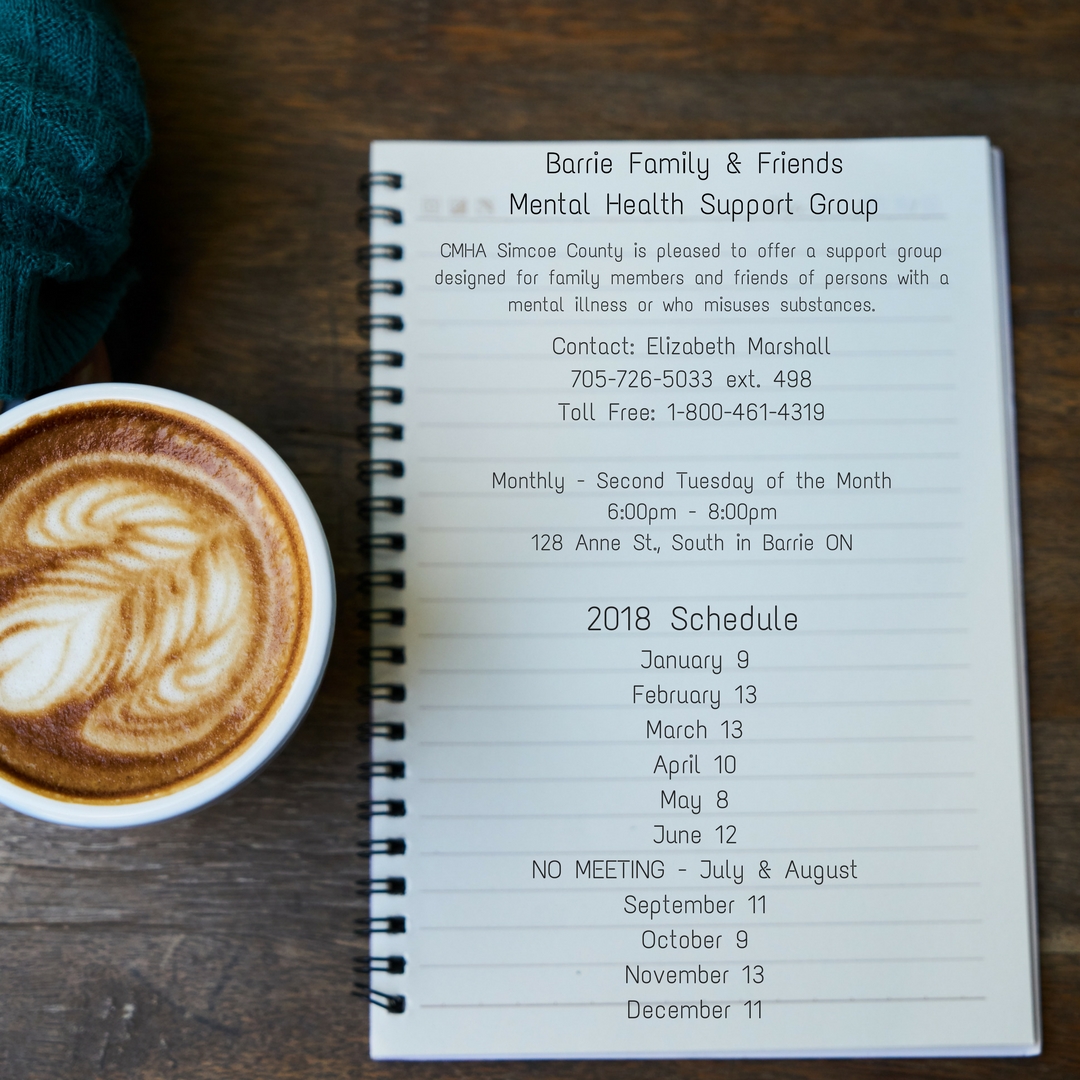 Barrie Family & Friends
Mental Health Support Group
CMHA Simcoe County is pleased to offer a support group
designed for family members and friends of persons with a
mental illness or who misuses substances.
Contact: Elizabeth Marshall
705-726-5033 ext. 498
Toll Free: 1-800-461-4319
Monthly - Second Tuesday of the Month
6:00pm - 8:00pm
128 Anne St., South in Barrie ON
2018 Schedule
January 9
February 13
March 13
April 10
May 8
June 12
NO MEETING - July & August
September 11
October 9
November 13
December 11